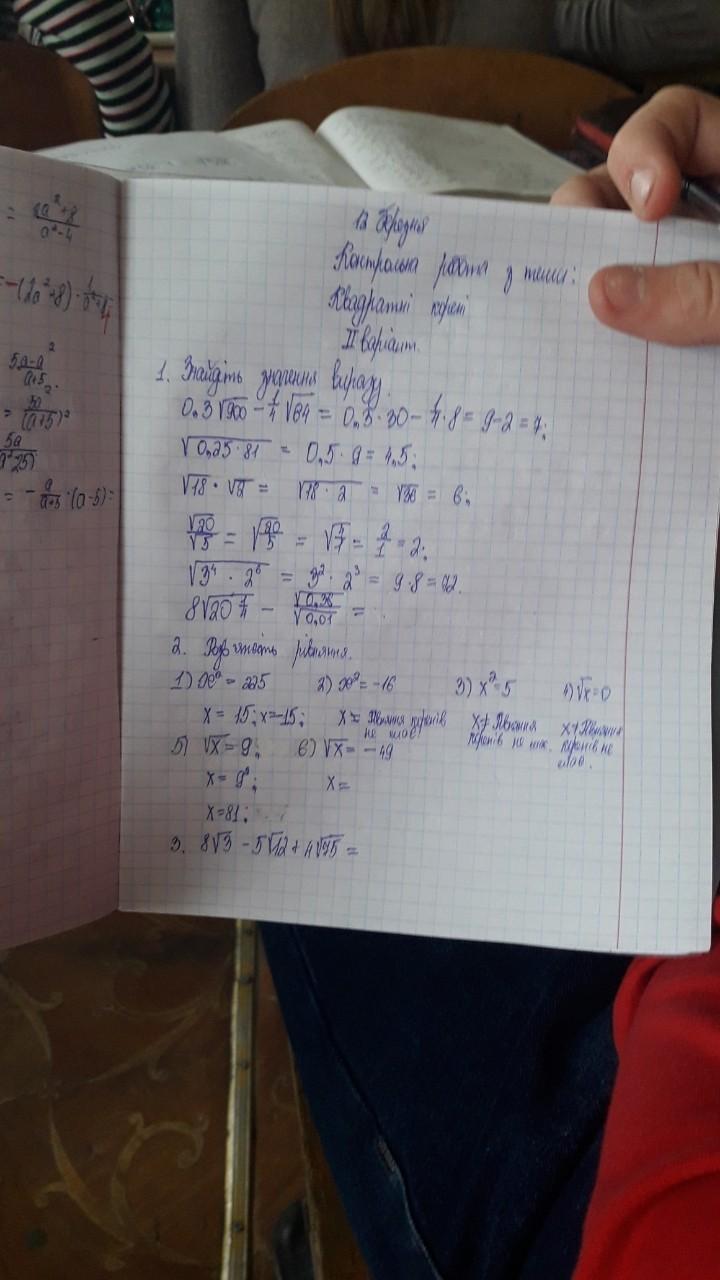 = 2a²+8 / a²-4
= -(2a²+8) · 1/
5a-a² / a+5
(a+5)²
5a
= - a/a+5 · (a-5) =
12 березня
Контрольна робота з теми:
Квадратні корені
II варіант.
1. Знайдіть значення виразу.
0.3√900 - 1/4√64 = 0,3·30 - 1/4·8 = 9-2 = 7;
√0,25·81 = 0,5·9 = 4,5;
√18 · √2 = √18·2 = √36 = 6;
√20/√5 = √20/5 = √4/1 = 2/1 = 2;
√3⁴ · 2⁶ = 3² · 2³ = 9·8 = 72.
8√20 1/4 - √0,36/√0,01 =
2. Розв'яжіть рівняння.
1) x² = 225 2) x² = -16 3) x² = 5 4) √x = 0
x = 15; x = -15; x = Рівняння коренів не має x ≠ Рівняння коренів не має. x ≠ Рівняння коренів не має.
5) √x = 9; 6) √x = -49
x = 9²; x =
x = 81;
3. 8√3 - 5√12 + 4√75 =